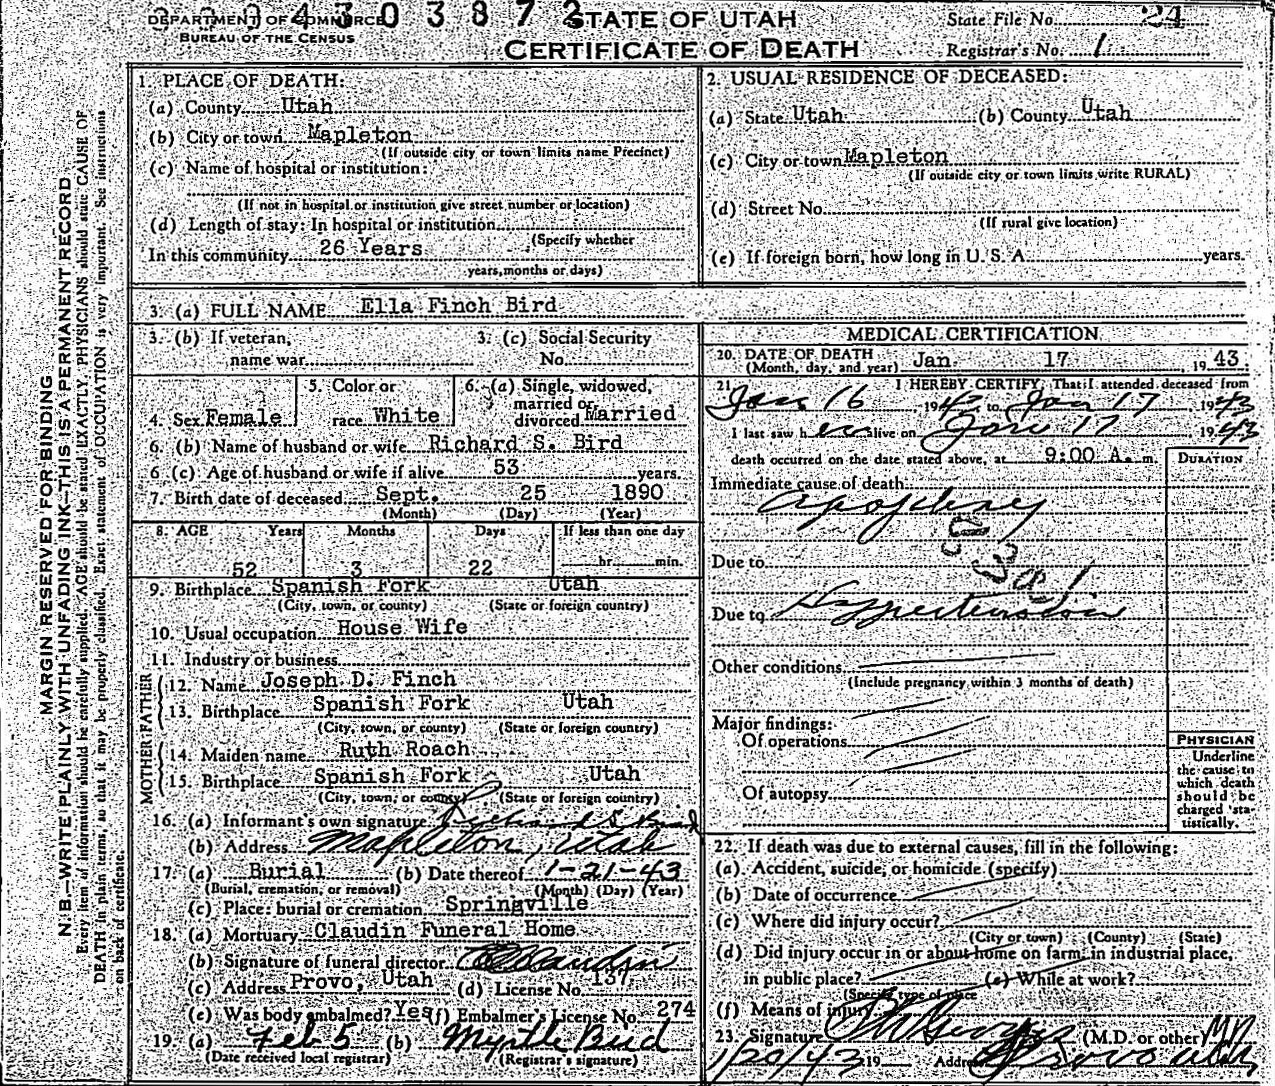 DEPARTMENT OF COMMERCE
BUREAU OF THE CENSUS
4303872
STATE OF UTAH
CERTIFICATE OF DEATH
State File No. 24
Registrar's No. 1
MARGIN RESERVED FOR BINDING
N. B.—WRITE PLAINLY WITH UNFADING INK—THIS IS A PERMANENT RECORD
Every item of information should be carefully supplied. AGE should be stated EXACTLY. PHYSICIANS should state CAUSE OF
DEATH in plain terms, so that it may be properly classified. Exact statement of OCCUPATION is very important. See instructions
on back of certificate.
1. PLACE OF DEATH:
(a) County Utah
(b) City or town Mapleton
(If outside city or town limits name Precinct)
(c) Name of hospital or institution:
(If not in hospital or institution give street number or location)
(d) Length of stay: In hospital or institution
(Specify whether
In this community 26 Years
years, months or days)
2. USUAL RESIDENCE OF DECEASED:
(a) State Utah (b) County Utah
(c) City or town Mapleton
(If outside city or town limits write RURAL)
(d) Street No.
(If rural give location)
(e) If foreign born, how long in U. S. A. years.
3. (a) FULL NAME Ella Finch Bird
3. (b) If veteran,
name war
3. (c) Social Security
No.
4. Sex Female
5. Color or
race White
6. (a) Single, widowed,
married or
divorced Married
6. (b) Name of husband or wife Richard S. Bird
6 (c) Age of husband or wife if alive 53 years.
7. Birth date of deceased Sept. 25 1890
(Month) (Day) (Year)
8. AGE Years Months Days If less than one day
52 3 22 hr. min.
9. Birthplace Spanish Fork Utah
(City, town, or county) (State or foreign country)
10. Usual occupation House Wife
11. Industry or business
FATHER
12. Name Joseph D. Finch
13. Birthplace Spanish Fork Utah
(City, town, or county) (State or foreign country)
MOTHER
14. Maiden name Ruth Roach
15. Birthplace Spanish Fork Utah
(City, town, or county) (State or foreign country)
16. (a) Informant's own signature Richard S. Bird
(b) Address Mapleton, Utah
17. (a) Burial (b) Date thereof 1-21-43
(Burial, cremation, or removal) (Month) (Day) (Year)
(c) Place: burial or cremation Springville
18. (a) Mortuary Claudin Funeral Home
(b) Signature of funeral director Claudin
(c) Address Provo, Utah (d) License No. 137
(e) Was body embalmed? Yes (f) Embalmer's License No. 274
19. (a) Feb 5 (b) Myrtle Bird
(Date received local registrar) (Registrar's signature)
MEDICAL CERTIFICATION
20. DATE OF DEATH Jan. 17 1943.
(Month, day, and year)
21. I HEREBY CERTIFY, That I attended deceased from
Jan 16, 1943 to Jan 17 1943
I last saw her alive on Jan 17 1943
death occurred on the date stated above, at 9:00 A. m.
DURATION
Immediate cause of death
apoplexy
83a1
Due to
Due to Hypertension
Other conditions
(Include pregnancy within 3 months of death)
Major findings:
Of operations
Of autopsy
PHYSICIAN
Underline
the cause to
which death
should be
charged sta-
tistically.
22. If death was due to external causes, fill in the following:
(a) Accident, suicide, or homicide (specify)
(b) Date of occurrence
(c) Where did injury occur?
(City or town) (County) (State)
(d) Did injury occur in or about home on farm, in industrial place,
in public place? (e) While at work?
(Specify type of place
(f) Means of injury
23. Signature (M.D. or other) MD
1/20/43 19 Address Provo Utah